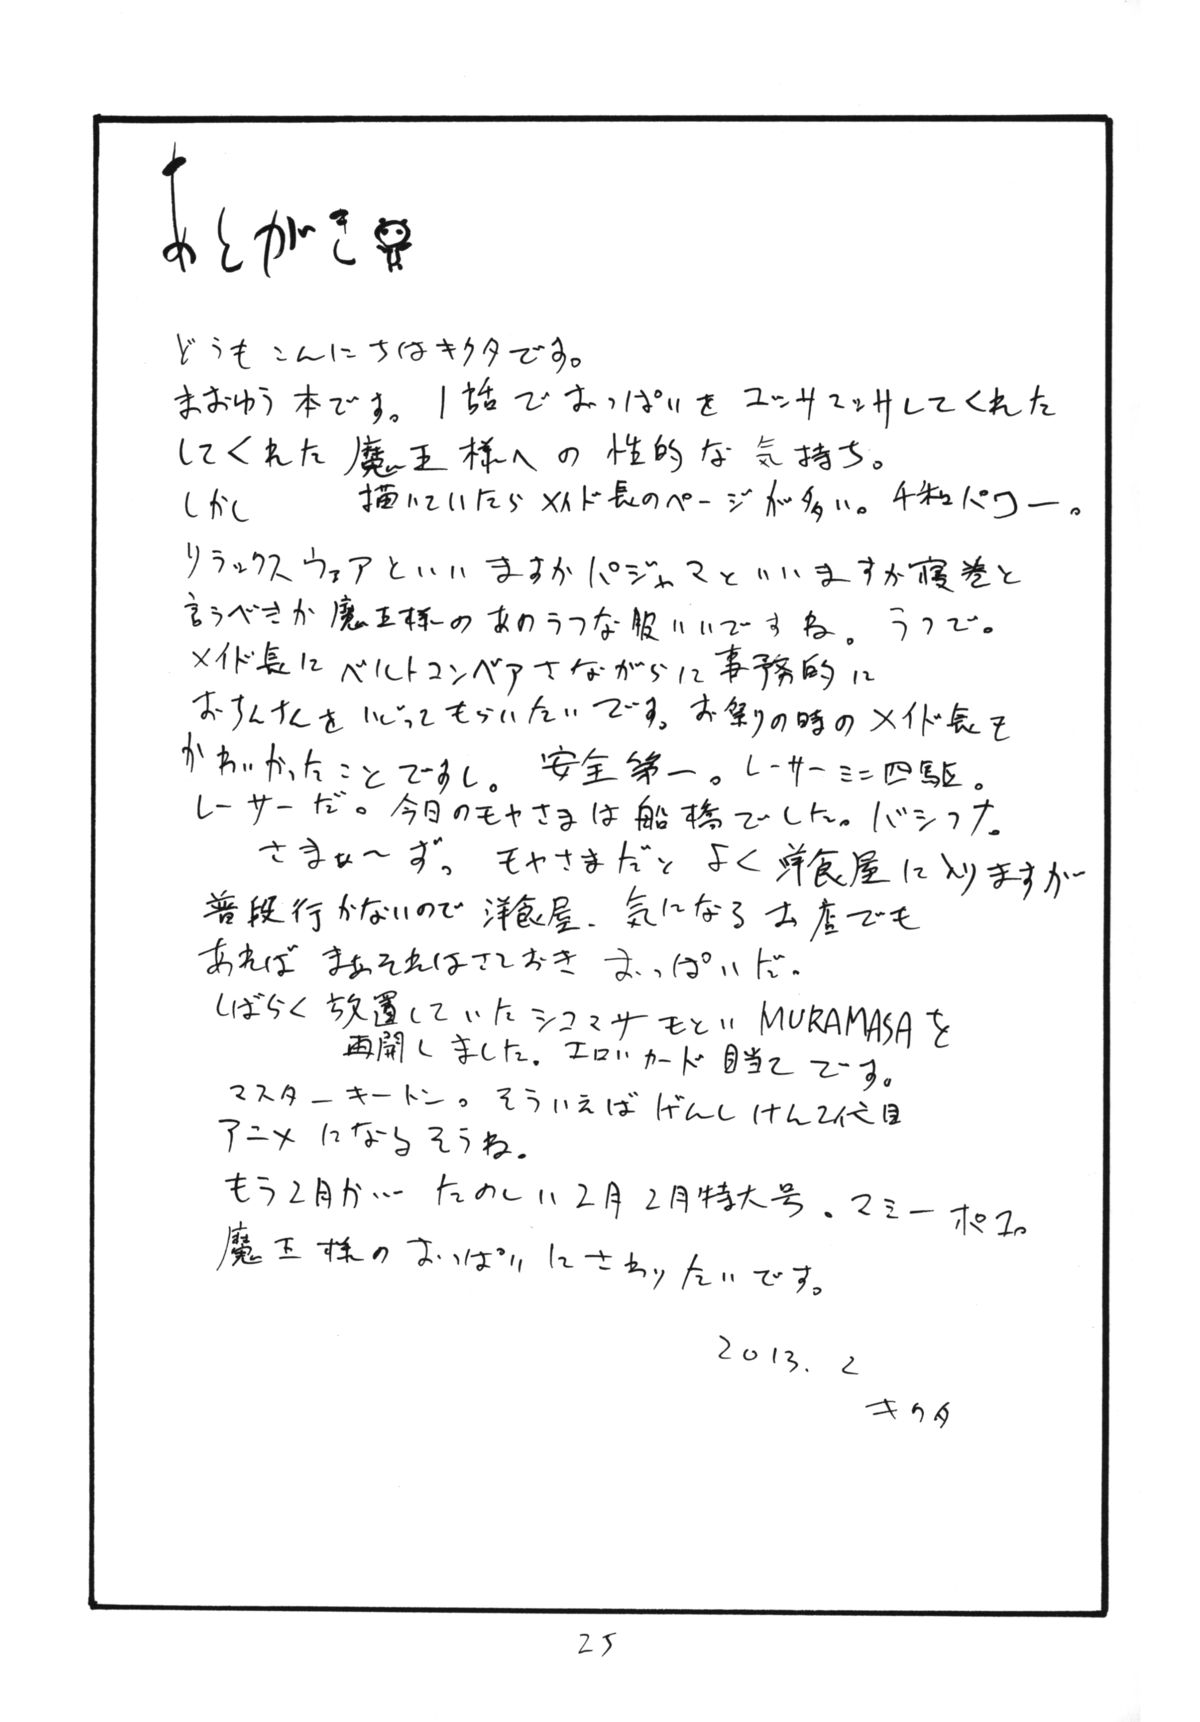 あとがき
どうもこんにちはキクタです。
まおゆう本です。1話でおっぱいをユッサユッサしてくれた
してくれた魔王様への性的な気持ち。
しかし 描いていたらメイド長のページが多い。千和パワー。
リラックスウェアといいますかパジャマといいますか寝巻と
言うべきか魔王様のあのラフな服いいですね。ラフで。
メイド長にベルトコンベアさながらに事務的に
おちんちんをいじってもらいたいです。お祭りの時のメイド長も
かわいかったことですし。安全第一。レーサーミニ四駆。
レーサーだ。今日のモヤさまは船橋でした。バシフナ。
さまぁ〜ず。モヤさまだとよく洋食屋に入りますが
普段行かないので洋食屋、気になるお店でも
あれば まぁそれはさておき おっぱいだ。
しばらく放置していたシコマサもといMURAMASAを
再開しました。エロいカード目当てです。
マスターキートン。そういえばげんしけん2代目
アニメになるそうね。
もう2月か… たのしい2月 2月特大号。マミーポコ。
魔王様のおっぱいにさわりたいです。
2013. 2
キクタ
25